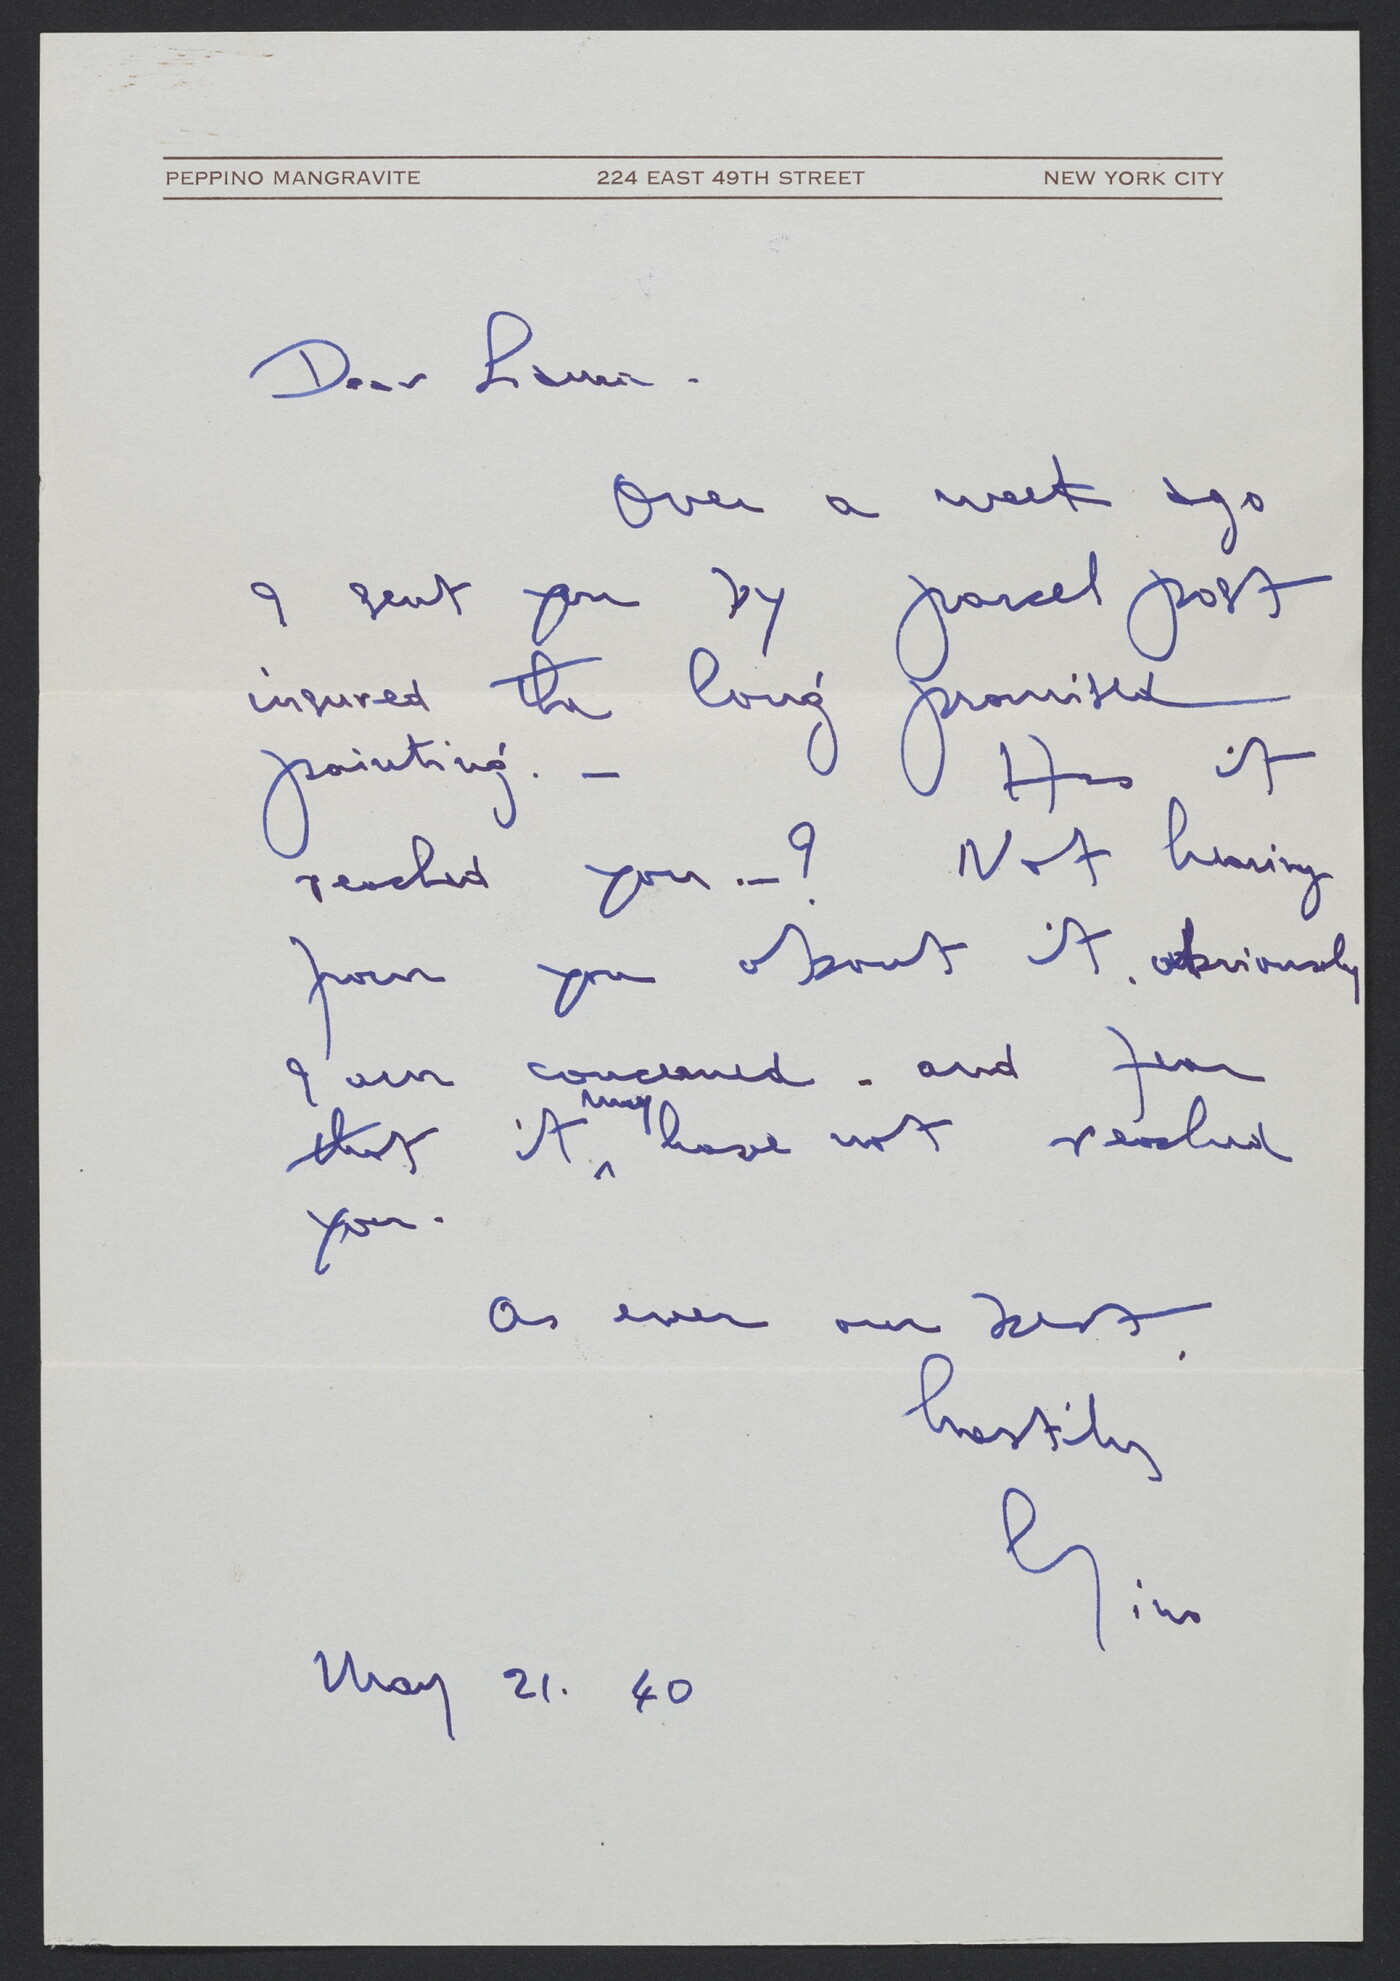 PEPPINO MANGRAVITE 224 EAST 49TH STREET NEW YORK CITY
Dear
Over a week ago
I sent you by parcel post
insured the long promised
painting. — Has it
reached you — ? Not hearing
from you about it, obviously
I am concerned - and fear
that it may have not reached
you.
As ever our best.
hastily
Gino
May 21. 40